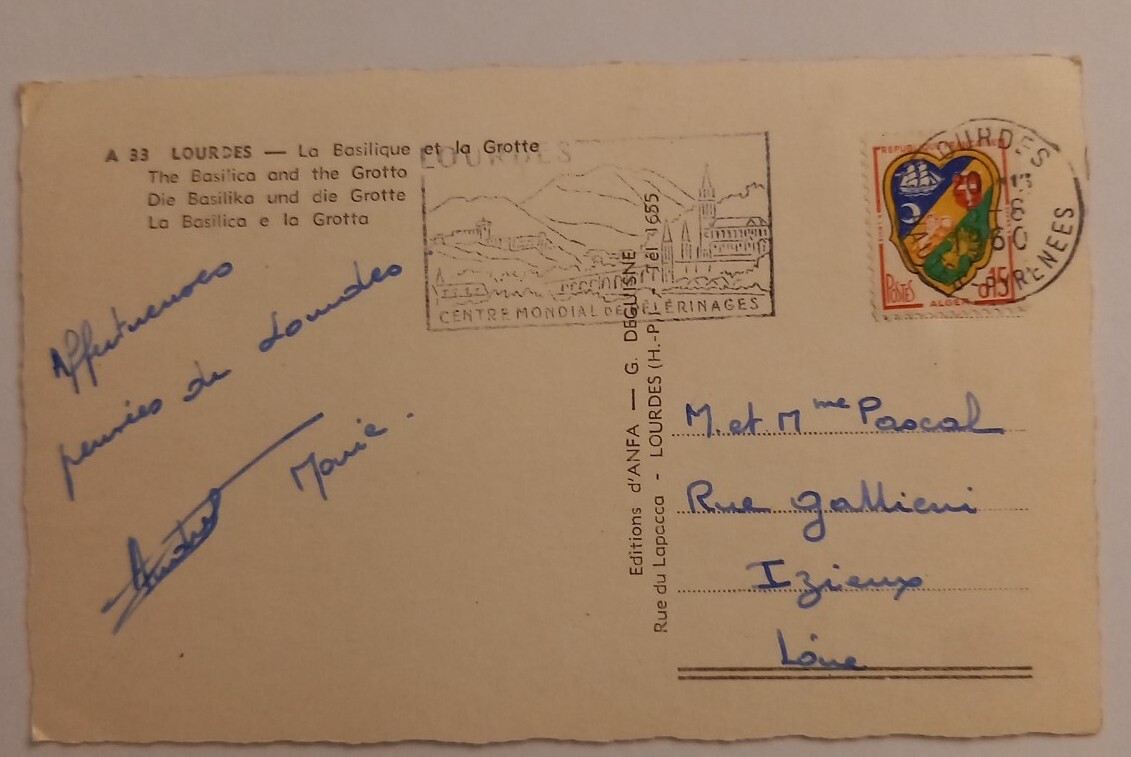 A 33 LOURDES — La Basilique et la Grotte
The Basilica and the Grotto
Die Basilika und die Grotte
La Basilica e la Grotta
LOURDES
CENTRE MONDIAL DE PÈLERINAGES
LOURDES
13
6
60
PYRENEES
POSTES
ALGER
0,15
Affectueuses
pensées de Lourdes
Marie.
André
Editions d'ANFA — G. DEGUISNE
Rue du Lapacca - LOURDES (H.-P.) - Tél 1655
M. et Mme Pascal
Rue Gallieni
Izieux
Loire